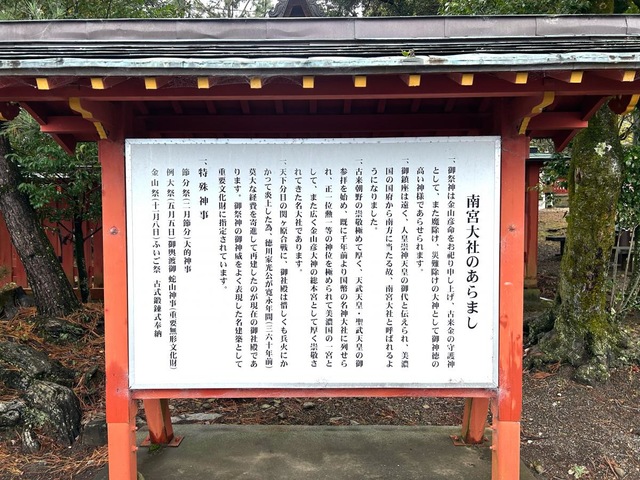 南宮大社のあらまし
一、御祭神は金山彦命をお祀り申し上げ、古来金の守護神
として、また魔除け、災難除けの大神として御神徳の
高い神様であらせられます。
一、御鎮座は遠く、人皇崇神天皇の御代と伝えられ、美濃
国の国府から南方に当たる故、南宮大社と呼ばれるよ
うになりました。
一、古来朝野の崇敬極めて厚く、天武天皇・聖武天皇の御
参拝を始め、既に千年前より国幣の名神大社に列せら
れ、正一位勲一等の神位を極められて美濃国の一宮と
して、また広く金山彦大神の総本宮として厚く崇敬さ
れてきた名大社であります。
一、天下分目の関ヶ原合戦に、御社殿は惜しくも兵火にか
かつて炎上した為、徳川家光公が寛永年間(三六十年前)
莫大な経費を寄進して再建したのが現在の御社殿であ
ります。御祭神の御神威をよく表現した名建築として
重要文化財に指定されています。
一、特殊神事
節分祭(二月節分)大的神事
例大祭(五月五日)御輿渡御 蛇山神事(重要無形文化財)
金山祭(十一月八日)ふいご祭 古式鍛錬式奉納